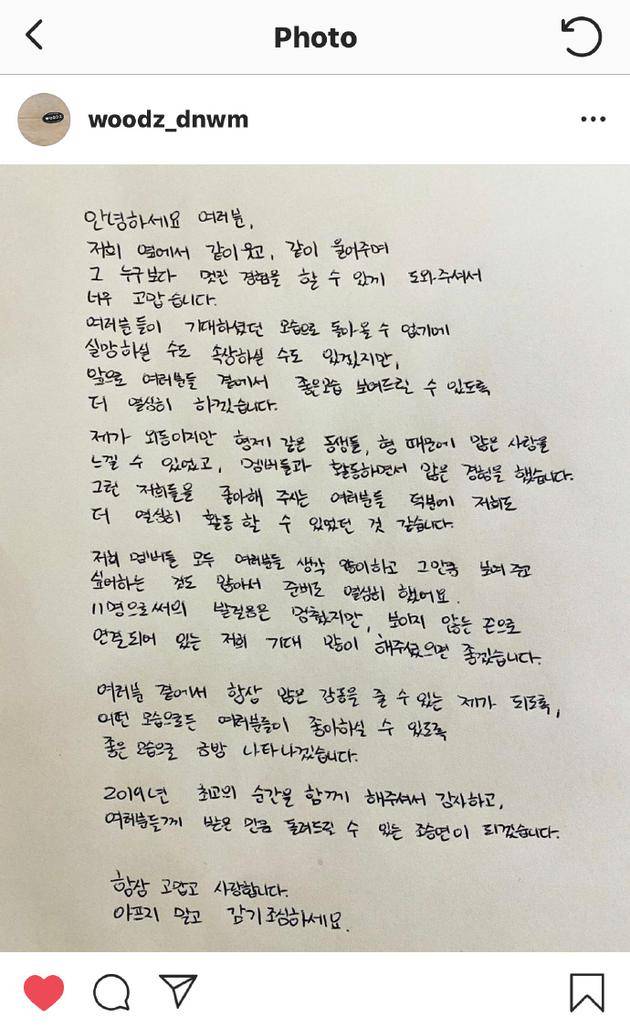 Photo
woodz_dnwm
안녕하세요 여러분,
저희 옆에서 같이 웃고, 같이 울어주며
그 누구보다 멋진 경험을 할 수 있게 도와주셔서
너무 고맙습니다.
여러분들이 기대하셨던 모습으로 돌아올 수 없기에
실망하실 수도 속상하실 수도 있겠지만,
앞으로 여러분들 곁에서 좋은모습 보여드릴 수 있도록
더 열심히 하겠습니다.
제가 외동이지만 형제 같은 동생들, 형 때문에 많은 사랑을
느낄 수 있었고, 멤버들과 활동하면서 많은 경험을 했습니다.
그런 저희들을 좋아해 주시는 여러분들 덕분에 저희도
더 열심히 활동 할 수 있었던 것 같습니다.
저희 멤버들 모두 여러분들 생각 많이하고 그만큼 보여 주고
싶어하는 것도 많아서 준비도 열심히 했어요.
11명으로써의 발걸음은 멈췄지만, 보이지 않는 끈으로
연결되어 있는 저희 기대 많이 해주셨으면 좋겠습니다.
여러분 곁에서 항상 많은 감동을 줄 수 있는 제가 되도록,
어떤 모습으로든 여러분들이 좋아하실 수 있도록
좋은 모습으로 금방 나타나겠습니다.
2019년 최고의 순간을 함께 해주셔서 감사하고,
여러분들께 받은 만큼 돌려드릴 수 있는 조승연이 되겠습니다.
항상 고맙고 사랑합니다.
아프지 말고 감기조심하세요.